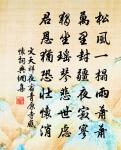 松風一榻雨蕭蕭
萬里封疆夜寂寥
獨坐瑤琴悲世慮
君恩猶恐壯懷消
文天祥夜宿青原寺感
懷詞典網集